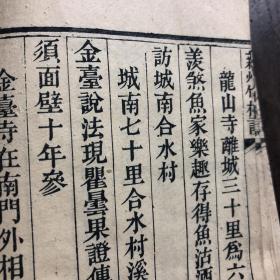 龍山寺離城三十里爲六
羨煞魚家樂趣存得魚沽酒
訪城南合水村
城南七十里合水村溪
金臺說法現瞿曇果證傳
須面壁十年參
金臺寺在南門外相